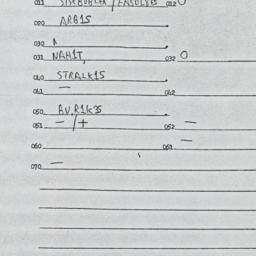 011 SISEBOHLEN / EASOLVES 012 0
020 ARB15
030 A
031 NAH1T, 032 O
040 STRALK15
041 — 042
050 AV,R1K35
051 — /+ 052 —
060 061 —
070 —